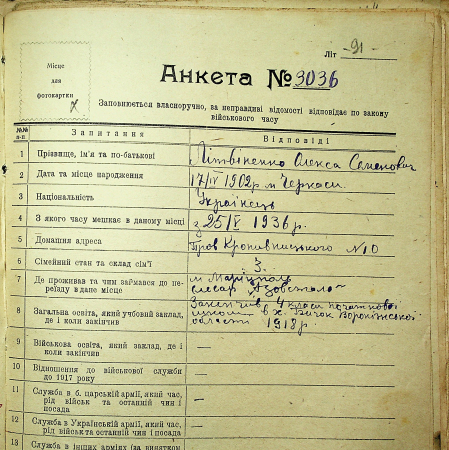 Літ -91-
Місце
для
фотокартки
Анкета № 3036
Заповнюється власноручно, за неправдиві відомості відповідає по закону
військового часу
№№ п-п Запитання Відповіді
1 Прізвище, ім'я та по-батькові Літвіненко Олекса Семенович
2 Дата та місце народження 17/IV 1902 р. м Черкаси.
3 Національність Українець
4 З якого часу мешкає в даному місці з 25/V 1936 р.
5 Домашня адреса Пров Кропивницького № 10
6 Сімейний стан та склад сім'ї 3.
7 Де проживав та чим займався до пе-
реїзду в дане місце
м Маріуполь
слюсар Азовсталь
8 Загальна освіта, який учбовий заклад,
де і коли закінчив
Закенчив 4 класи початкової
школи в х. Бичок Воронізької
області 1918 р.
9 Військова освіта, який заклад, де і
коли закінчив —
10 Відношення до військової служби
до 1917 року —
11 Служба в б. царській армії, який час,
рід військ та останній чин і
посада —
12 Служба в Українській армії, який час,
рід військ та останній чин і посада —
13 Служба в інших арміях (за винятком